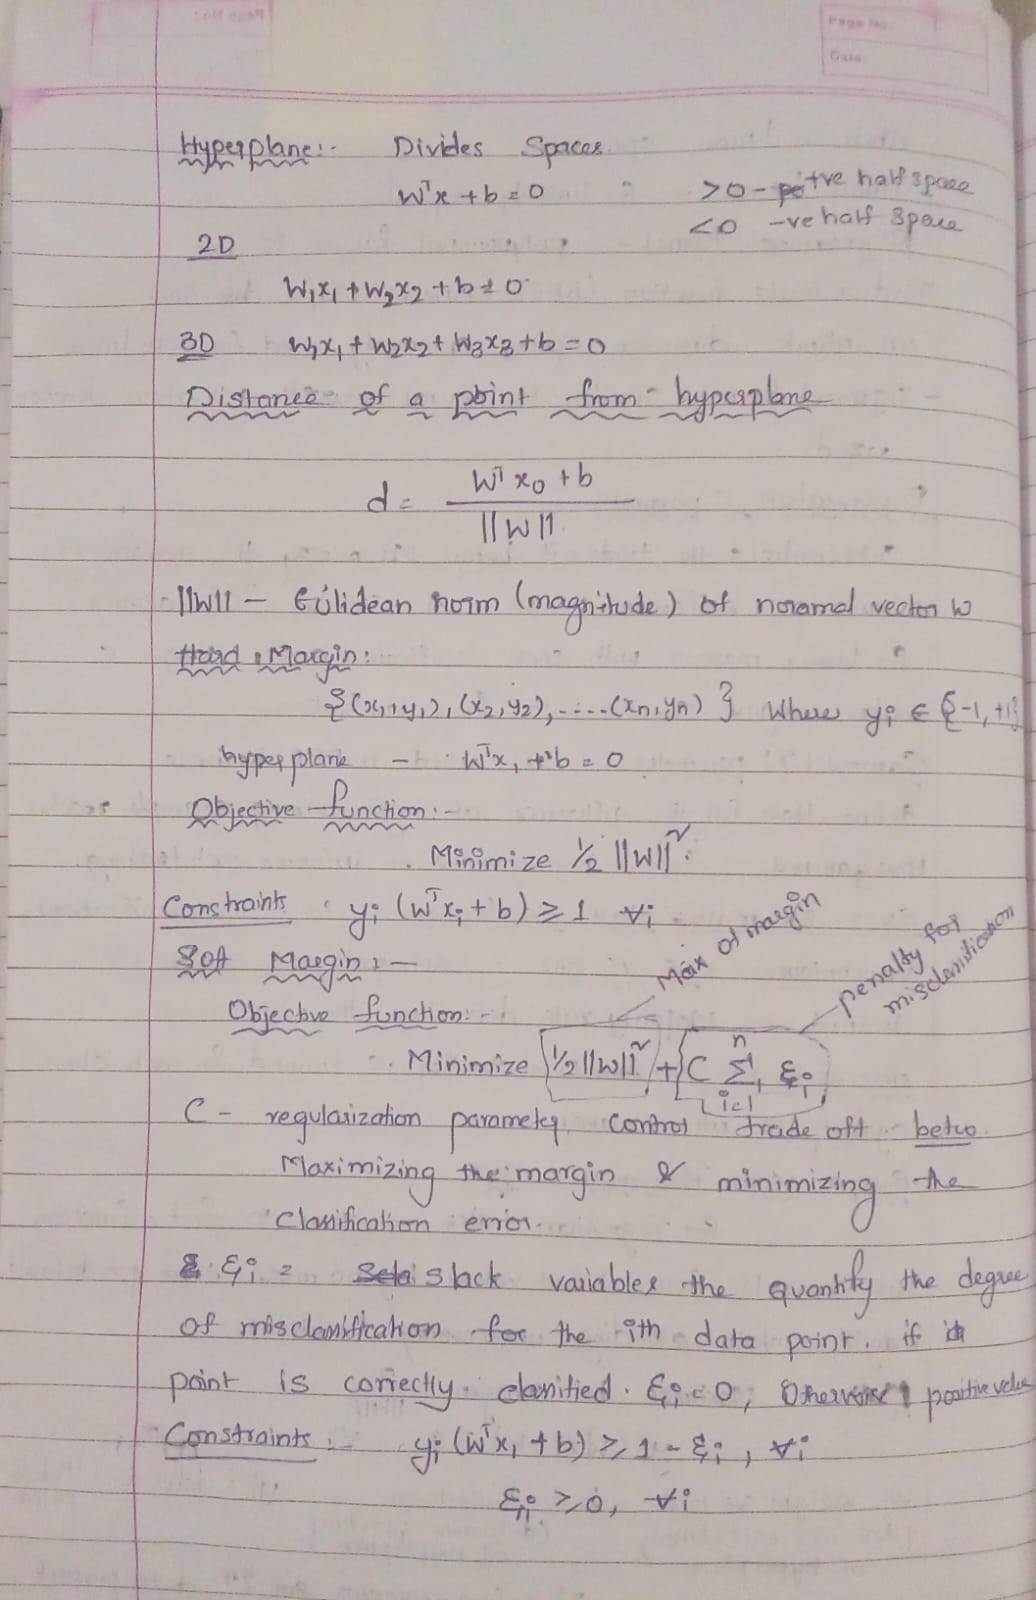 Page No:
Date:
Hyperplane:- Divides Spaces.
wᵀx + b = 0 >0 - +ve half space
<0 -ve half space
2D
w₁x₁ + w₂x₂ + b = 0
3D w₁x₁ + w₂x₂ + w₃x₃ + b = 0
Distance of a point from hyperplane
d = (wᵀx₀ + b) / ||w||
||w|| – Eulidean norm (magnitude) of noramal vector w
Hard Margin:
{(x₁, y₁), (x₂, y₂), ..... (xn, yn)} Where yi ∈ {-1, +1}
hyperplane - wᵀx₁ + b = 0
Objective function:-
Minimize 1/2 ||w||²
Constraints yi (wᵀxi + b) ≥ 1 ∀i
Soft Margin:-
Max of margin
penalty for misclassification
Objective function:-
Minimize 1/2 ||w||² + C Σⁿᵢ₌₁ ξi
C - regularization parameter, control trade off betwo
Maximizing the margin & minimizing the
classification error.
ξi = slack variables the quantify the degree
of misclassification for the ith data point. if
point is correctly classified. ξi = 0, Otherwise positive value
Constraints:- yi (wᵀx₁ + b) ≥ 1 - ξi, ∀i
ξi ≥ 0, ∀i